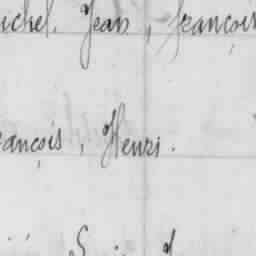 ichel, Jean, françois
ançois, Henri.